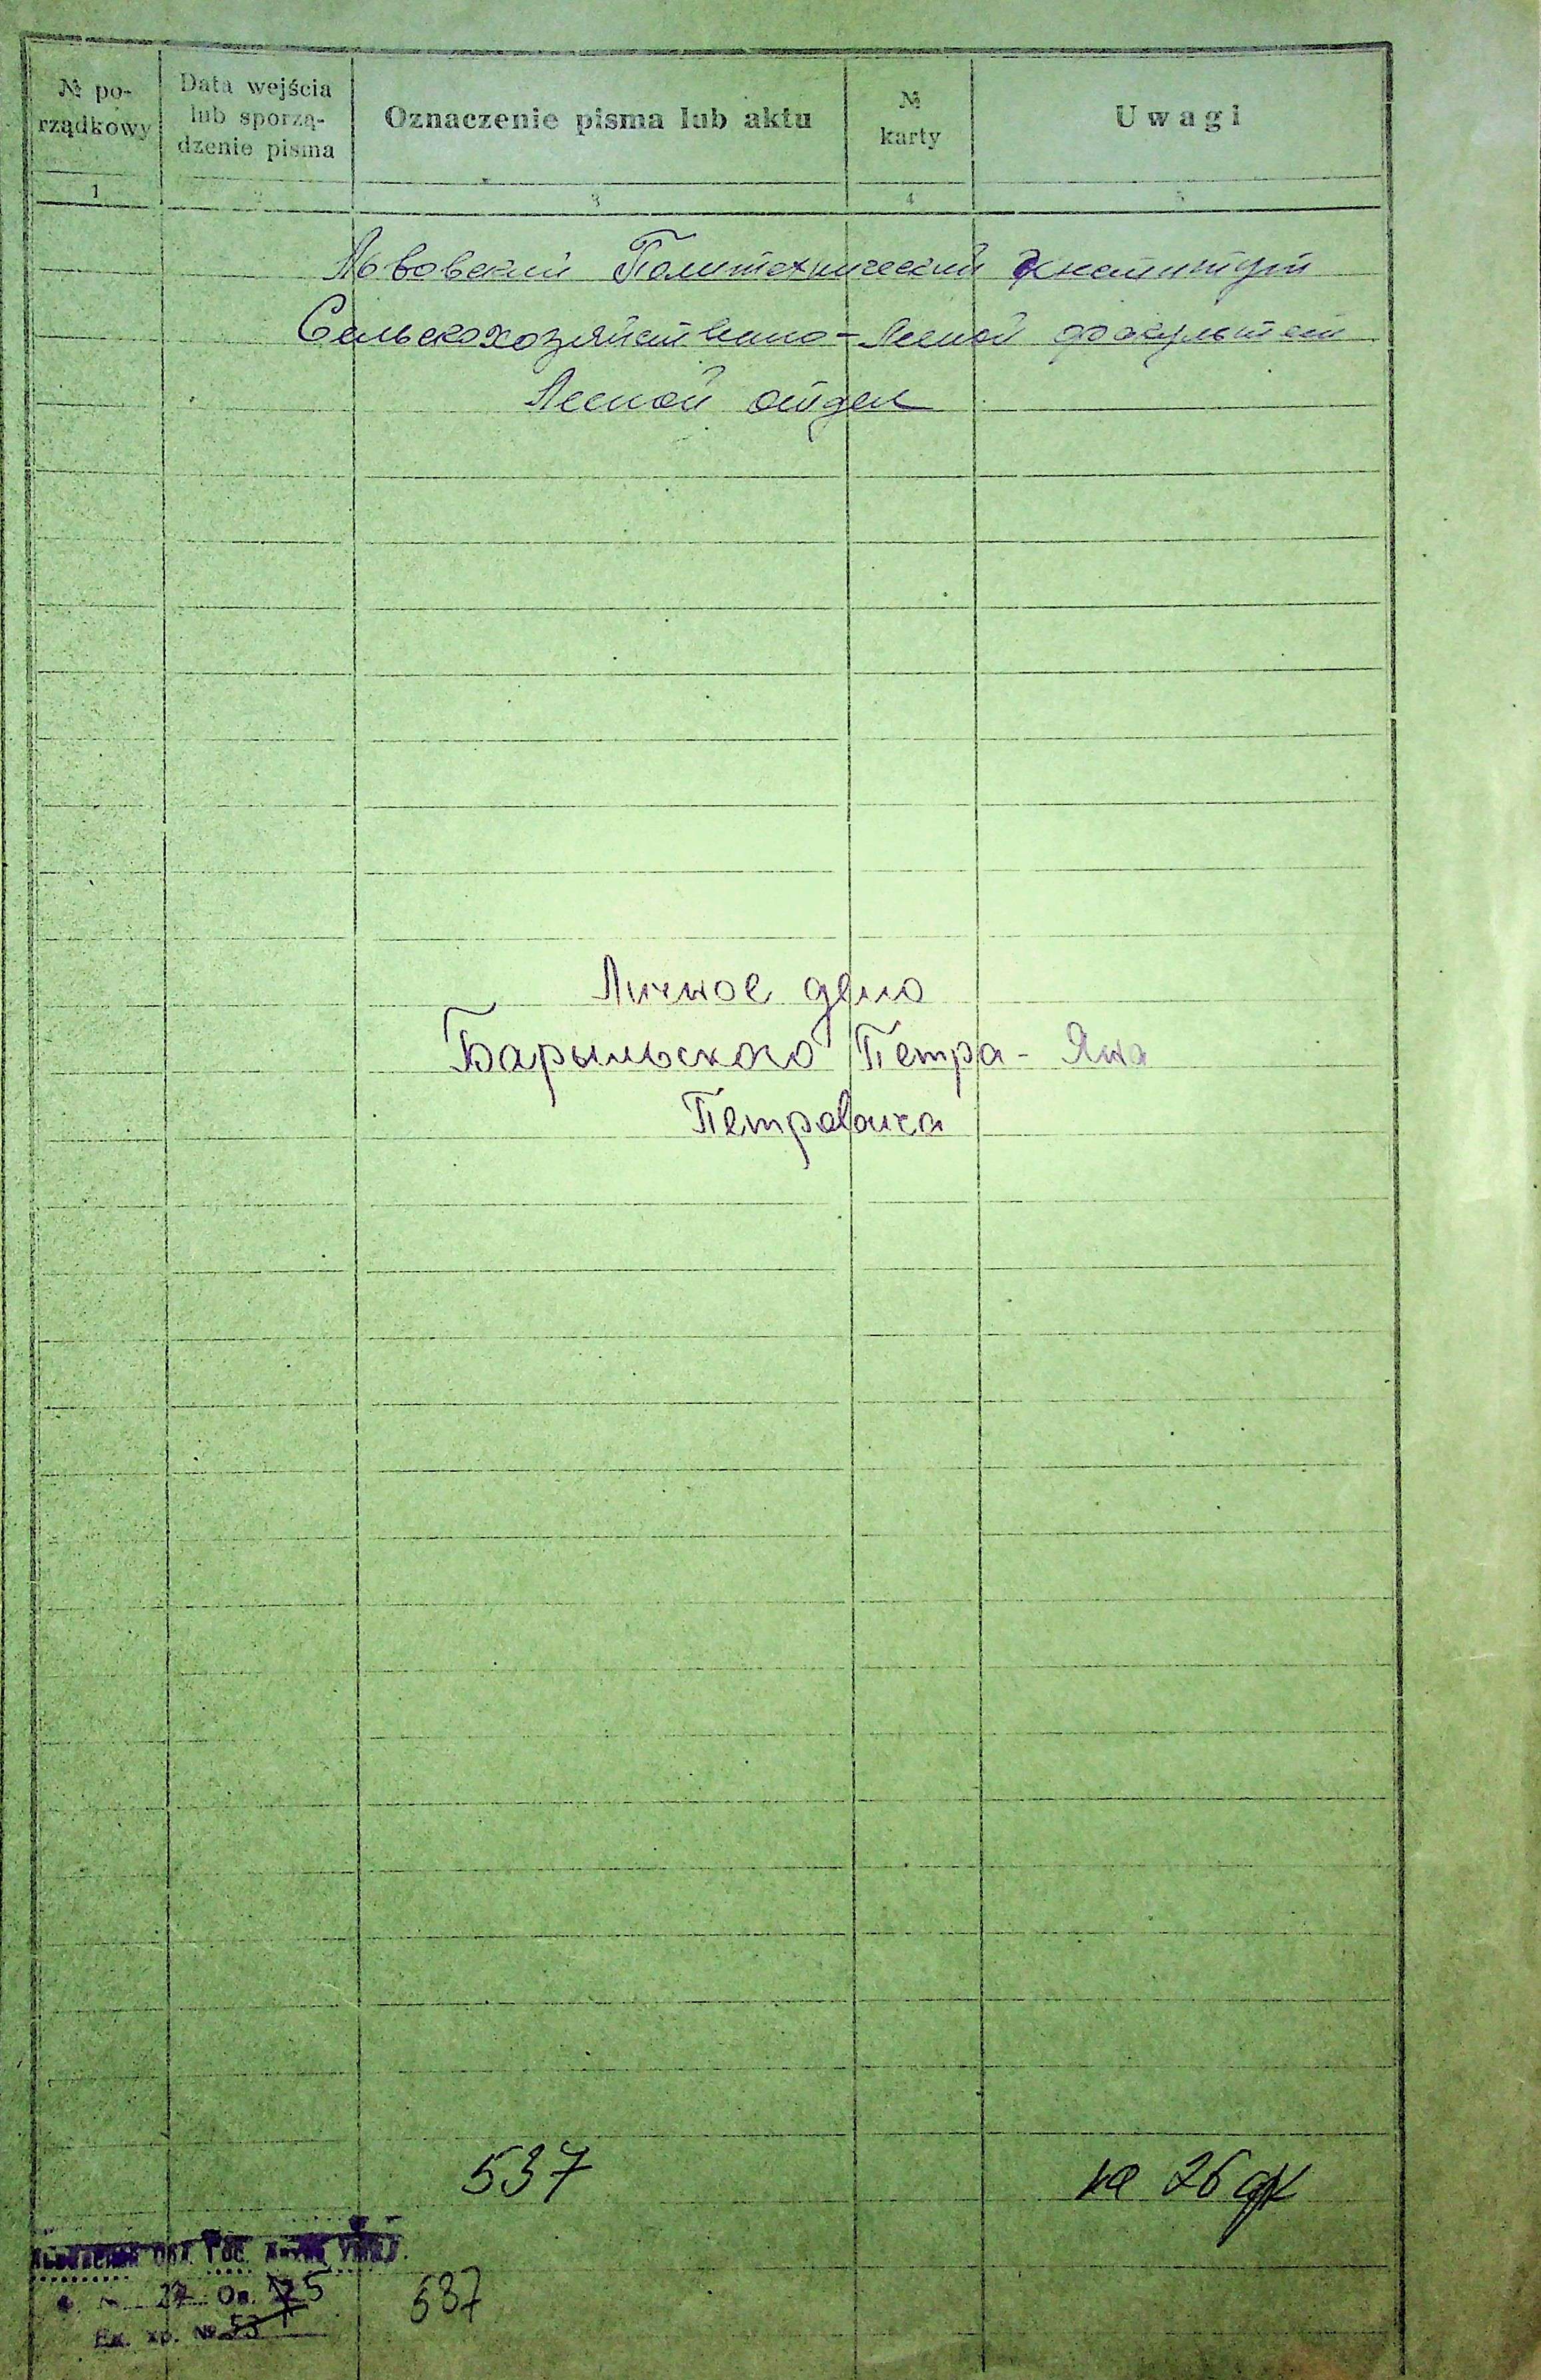 № po-
rządkowy
Data wejścia
lub sporzą-
dzenie pisma
Oznaczenie pisma lub aktu
№
karty
Uwagi
1 2 3 4 5
Львовский Политехнический Институт
Сельскохозяйственно-Лесной факультет
Лесной отдел
Личное дело
Барыльского Петра-Яна
Петровича
537
на 26
Гос.
27 Оп. 5
Ед. хр. №
537